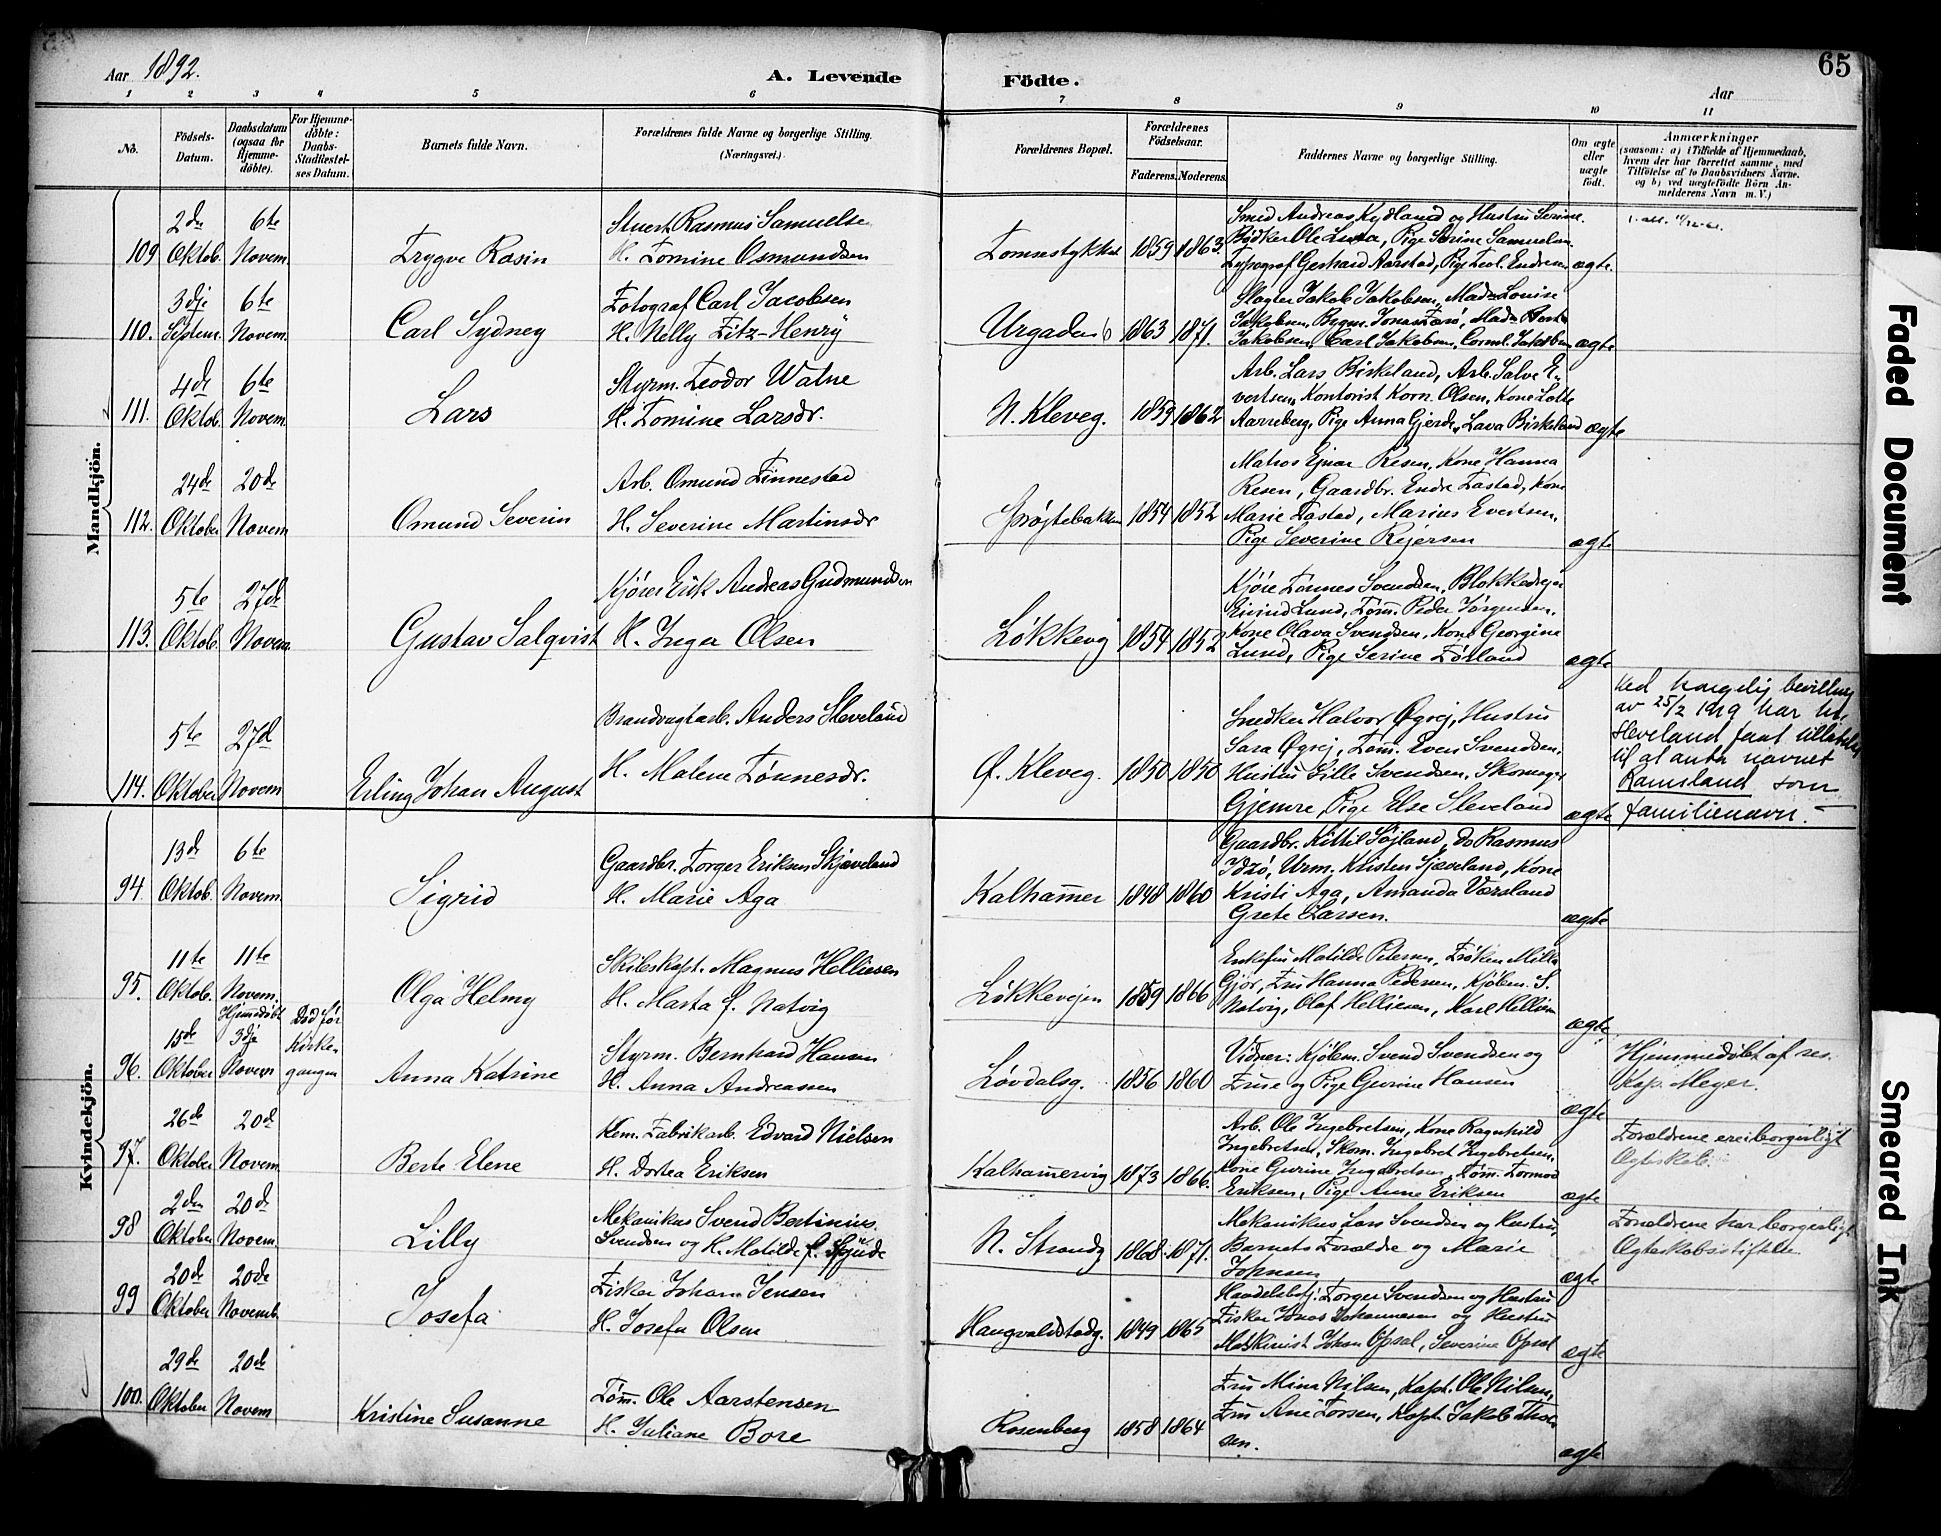 Aar 1892.
A. Levende Födte.
65
Aar
1 2 3 4 5 6 7 8 9 10 11
No.
Födsels-Datum.
Daabsdatum (ogsaa for Hjemme-döbte).
For Hjemme-döbte: Daabs-Stadfæstel-ses Datum.
Barnets fulde Navn.
Forældrenes fulde Navne og borgerlige Stilling.
(Næringsvei.)
Forældrenes Bopæl.
Forældrenes Födselsaar.
Faderens. Moderens.
Faddernes Navne og borgerlige Stilling.
Om ægte eller uægte födt.
Anmærkninger
(saasom: a) i Tilfælde af Hjemmedaab, hvem der har forrettet samme, med Tilföielse af to Daabsvidners Navne. og b) ved uægtefödte Börn An-melderens Navn m. V.)
Mandkjön.
2den 6te
Stuert Rasmus Samuelse
Smed Andreas Kydland og Hustru Serine.
109 Oktob. Novem. Trygve Rosin H. Tomine Osmundsen 1859 1863
Bødker Ole , Pige Serine Samuelsen
Typograf Gerhard Aarstad, Pige Endresen ægte.
3dje 6te
Fotograf Carl Jacobsen
Slagter Jakob Jakobsen, Mad. Louise
110. Septem. Novem. Carl Sydney H. Nelly Fitz-Henry Urgaden 6 1863 1871.
Jakobsen, Carl Jakobsen, Jakobsen ægte
4de 6te
Styrm. Teodor Watne
Arb. Lars Birkeland, Arb. Salve E-
111. Oktob. Novem. Lars H. Tomine Larsdr. N. Kleveg. 1859 1862
vertsen, Kontorist Korn. Olsen, Kone Lotte
Aarreberg, Pige Anna Gjerde, Lava Birkeland ægte
24de 20de
Arb. Omund Finnestad
Matros Ejnar Resen, Kone Hanna
Resen, Gaardbr. Endre Tastad, Kone
112. Oktober Novem Omund Severin H. Severine Martinsdr Grøjtebakken 1854 1852
Marie Tastad, Marius Evertsen,
Pige Severine Rejersen ægte
5te 27de
Kjører Erik Andreas Gudmundsen
Kjøre Tønnes Svendsen, Blokkedrejer
Eivind Lund, Tøm. Peder Jørgensen,
113. Oktob. Novem. Gustav Salqvist H. Inger Olsen Løkkevej 1854 1852
Kone Olava Svendsen, Kone Georgine
Lund, Pige Serine ægte
5te 27de
Brandvagtarb. Anders Sleveland
Snedker Halvor Øgrej, Hustru
Sara Øgrej, Tøm. Even Svendsen,
114. Oktober Novem Erling Johan August H. Malene Tønnesdr. Ø. Kleveg. 1850 1850
Hustru Gille Svendsen, Skomager
Gjemre, Pige Else Sleveland ægte
Ved kongelig bevilling
av 25/2 1919 har
Sleveland faat tillatelse
til at anta navnet
Ramsland som
familienavn.
Kvindekjön.
13de 6te
Gaardbr. Torger Eriksen Skjæveland
Gaardbr. Kittil Søjland, Do Rasmus
Idsø, Urm. Kristen Sjæveland, Kone
94. Oktob. Novem. Sigrid H. Marie Aga Kalhammer 1848 1860
Kristi Aga, Amanda Værsland
Grete Larsen. ægte
11te 11te
Skibskapt. Magnus Helliesen
Enkefru Matilde Petersen, Frøken Milla
Gjør, Fru Hanna Pedersen, Kjøbm. S.
95. Oktob. Novem. Olga Helmy H. Marta f. Natvig Løkkevejen 1859 1866
Natvig, Olaf Helliesen, Karl Helliesen ægte
Hjemmedøbt
15de 3dje
Død før Kirkegangen
Styrm. Bernhard Hansen
Vidner: Kjøbm. Svend Svendsen og
96. Oktober Novem Anna Katrine H. Anna Andreassen Løvdalsg. 1856 1860
Frue og Pige Gurine Hansen ægte
Hjemmedøbt af res.
Kap. Meyer.
26de 20de
Kem. Fabrikarb. Edvard Nielsen
Arb. Ole Ingebretsen, Kone Ragnhild
Ingebretsen, Skom. Ingebret Ingebretsen,
97. Oktober Novem. Berte Elene H. Dortea Eriksen Kalhammervig 1873 1866.
Kone Gurine Ingebretsen, Tøm. Tormod
Eriksen, Pige Anne Eriksen ægte
Forældrene ere i borgerligt
Ægteskab.
2den 20de
Mekanikus Svend Bertinius
Mekanikus Lars Svendsen og Hustru,
98 Oktober Novem. Lilly Svendsen og H. Matilde f. N. Strandg 1868 1871.
Barnets Forældre og Marie
Johnsen ægte
Forældrene har borgerligt
Ægteskabsstiftelse
20de 20de
Fisker Johan Jensen
Handelsbetj. Torger Svendsen og Hustru
99 Oktober Novemb. Josefa H. Josefa Olsen Haugvaldstadg. 1849 1865
Fisker Johannesen og Hustru
Maskinist Johan Opsal, Severine Opsal ægte
29de 20de
Tøm. Ole Aarstensen
Fru Mina Nilsen, Kapt. Ole Nilsen,
100. Oktober Novem Kristine Susanne H. Juliane Bore Rosenberg 1858 1864
Fru Ane Torsen, Kapt. Jakob Thor
sen. ægte
Faded Document
Smeared Ink